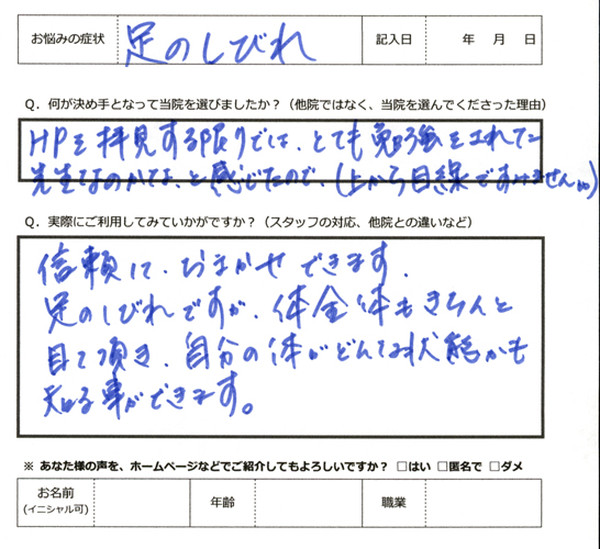 お悩みの症状 足のしびれ 記入日 年 月 日
Q．何が決め手となって当院を選びましたか？（他院ではなく、当院を選んでくださった理由）
HPを拝見する限りでは、とても勉強をされてた
先生なのかな、と感じたので、(上から目線ですみませんm)
Q．実際にご利用してみていかがですか？（スタッフの対応、他院との違いなど）
信頼して、おまかせできます。
足のしびれですが、体全体もきちんと
目て頂き、自分の体がどんな状態かも
知る事ができます。
※ あなた様の声を、ホームページなどでご紹介してもよろしいですか？ □はい □匿名で □ダメ
お名前 年齢 職業
(イニシャル可)